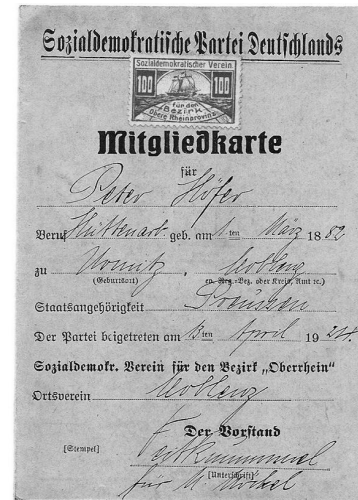 Sozialdemokratische Partei Deutschlands
Sozialdemokratischer Verein
100 100
für den
Bezirk
Obere Rheinprovinz
Mitgliedkarte
für
Peter Höfer
Beruf Hüttenarb. geb. am 1. ten März 1882
zu Koblenz
(Geburtsort) ev. Reg.-Bez. oder Kreis, Amt rc.)
Staatsangehörigkeit Preussen
Der Partei beigetreten am ten April 19
Sozialdemokr. Verein für den Bezirk „Oberrhein"
Ortsverein Koblenz
Der Vorstand
[Stempel]
[Unterschrift]
für